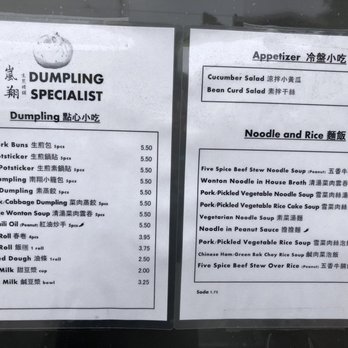 嵐翔
生煎燒餅
DUMPLING
SPECIALIST
Dumpling 點心小吃
Buns 生煎包 5pcs 5.50
Potsticker 生煎鍋貼 5.50
Potsticker 生煎素鍋貼 5.50
Dumpling 南翔小籠包 5.50
Dumpling 素蒸餃 5pcs 5.50
Cabbage Dumpling 菜肉蒸餃 5pcs 5.50
Wonton Soup 清湯菜肉雲吞 6pcs 5.50
Chili Oil (Peanut) 紅油炒手 5.50
Roll 春卷 4pcs 3.95
Roll 飯糰 1 roll 3.75
Fried Dough 油條 1roll 2.50
Milk 甜豆漿 cup 2.00
Milk 鹹豆漿 bowl 3.25
Appetizer 冷盤小吃
Cucumber Salad 涼拌小黃瓜
Bean Curd Salad 素拌干絲
Noodle and Rice 麵飯
Five Spice Beef Stew Noodle Soup (Peanut) 五香牛
Wonton Noodle in House Broth 清湯菜肉雲
Pork-Pickled Vegetable Noodle Soup 雪菜肉絲
Pork-Pickled Vegetable Rice Cake Soup 雪菜肉絲
Vegetarian Noodle Soup 素菜湯麵
Noodle in Peanut Sauce 擔擔麵
Pork-Pickled Vegetable Rice Soup 雪菜肉絲泡
Chinese Ham-Green Bok Choy Rice Soup 鹹肉菜泡飯
Five Spice Beef Stew Over Rice (Peanut) 五香牛腩
Soda 1.75